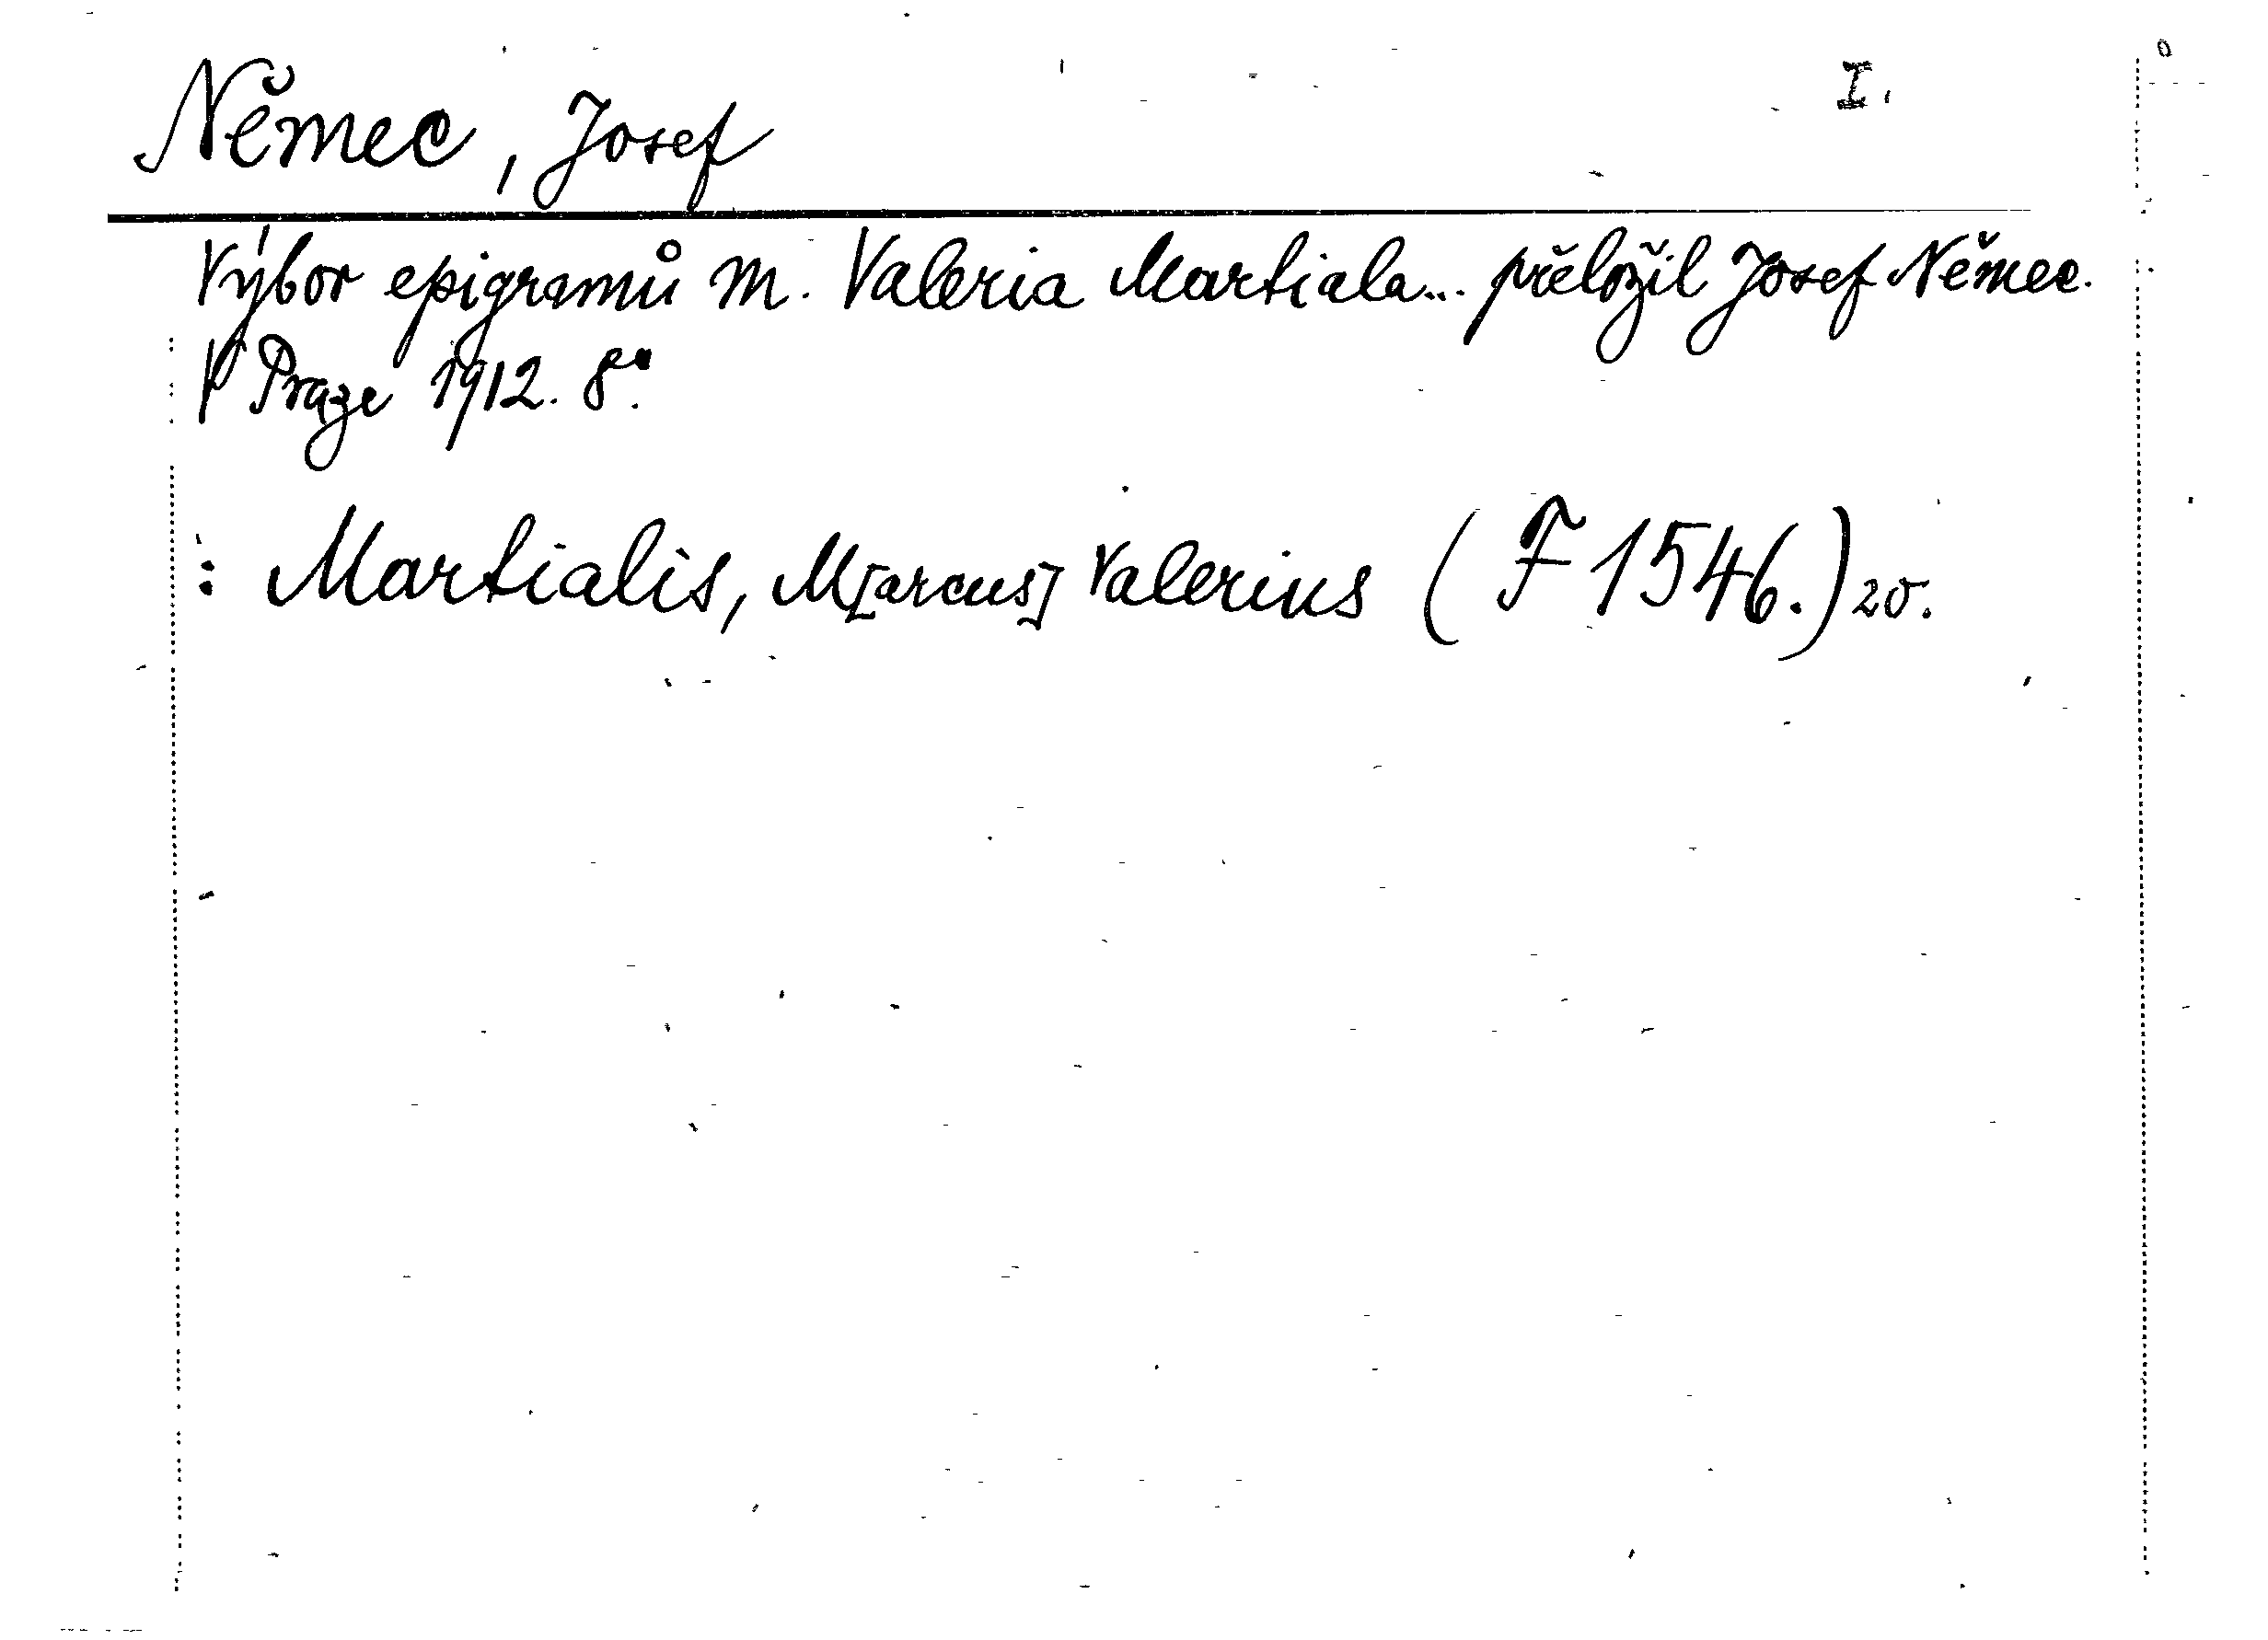 Němec, Josef I.
Výbor epigramů M. Valeria Martiala... přeložil Josef Němec.
V Praze 1912. 8°.
: Martialis, M[arcus] Valerius (F 1546.) 20.